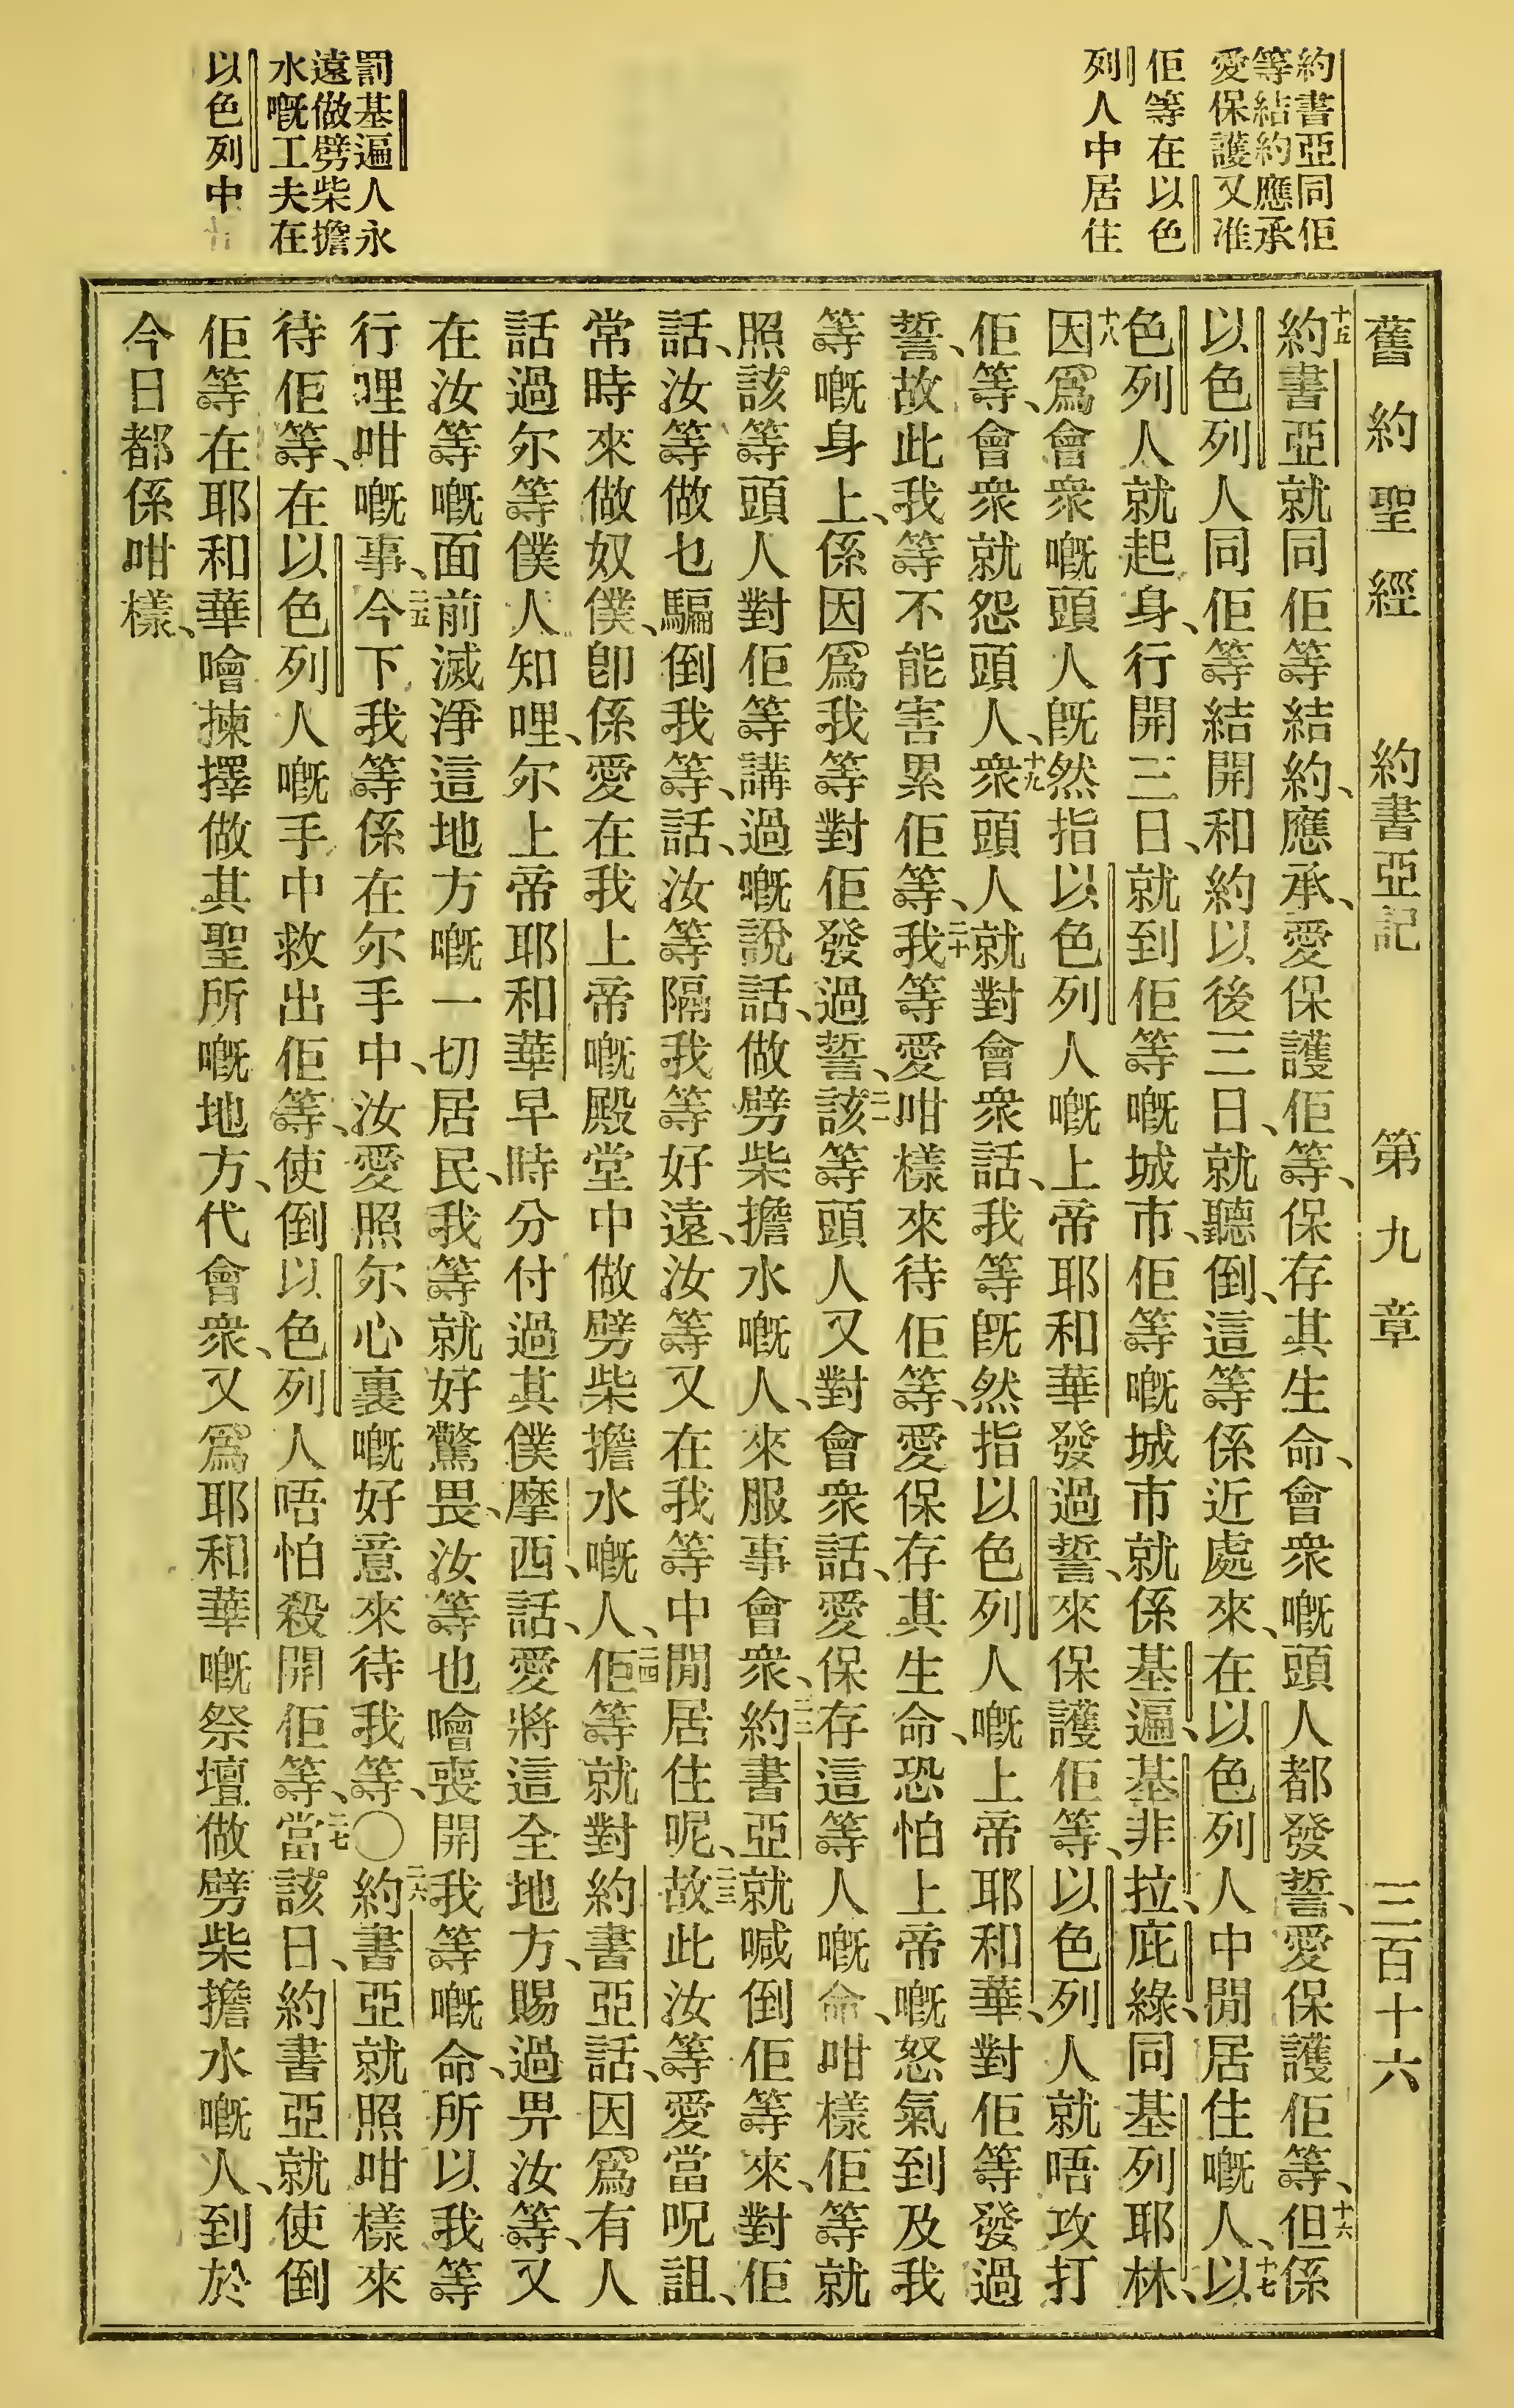 約書亞同佢
等結約應承
愛保護又准
佢等在以色
列人中居住
罰基遍人永
遠做劈柴擔
水嘅工夫在
以色列中
舊約聖經 約書亞記 第九章 三百十六
十五約書亞就同佢等結約、應承、愛保護佢等、保存其生命、會衆嘅頭人都發誓、愛保護佢等、十六但係
以色列人同佢等結開和約以後三日、就聽倒、這等係近處來、在以色列人中間居住嘅人、十七以
色列人就起身、行開三日、就到佢等嘅城市、佢等嘅城市就係基遍、基非拉、庇綠、同基列耶林、
十八因爲會衆嘅頭人旣然指以色列人嘅上帝耶和華發過誓、來保護佢等、以色列人就唔攻打
佢等、會衆就怨頭人、十九衆頭人就對會衆話、我等旣然指以色列人嘅上帝耶和華、對佢等發過
誓、故此我等不能害累佢等、二十我等愛咁樣來待佢等、愛保存其生命、恐怕上帝嘅怒氣到及我
等嘅身上、係因爲我等對佢發過誓、二一該等頭人又對會衆話、愛保存這等人嘅命、咁樣佢等就
照該等頭人對佢等講過嘅說話、做劈柴擔水嘅人、來服事會衆、二二約書亞就喊倒佢等來、對佢
話、汝等做乜騙倒我等、話、汝等隔我等好遠、汝等又在我等中間居住呢、二三故此汝等愛當呪詛、
常時來做奴僕、卽係愛在我上帝嘅殿堂中做劈柴擔水嘅人、二四佢等就對約書亞話、因爲有人
話過尔等僕人知哩、尔上帝耶和華早時分付過其僕摩西、話、愛將這全地方、賜過畀汝等、又
在汝等嘅面前滅淨這地方嘅一切居民、我等就好驚畏、汝等也噲喪開我等嘅命、所以我等
行哩咁嘅事、二五今下我等係在尔手中、汝愛照尔心裏嘅好意來待我等、〇二六約書亞就照咁樣來
待佢等、在以色列人嘅手中救出佢等、使倒以色列人唔怕殺開佢等、二七當該日、約書亞就使倒
佢等在耶和華噲揀擇做其聖所嘅地方、代會衆、又爲耶和華嘅祭壇做劈柴擔水嘅人、到於
今日都係咁樣、